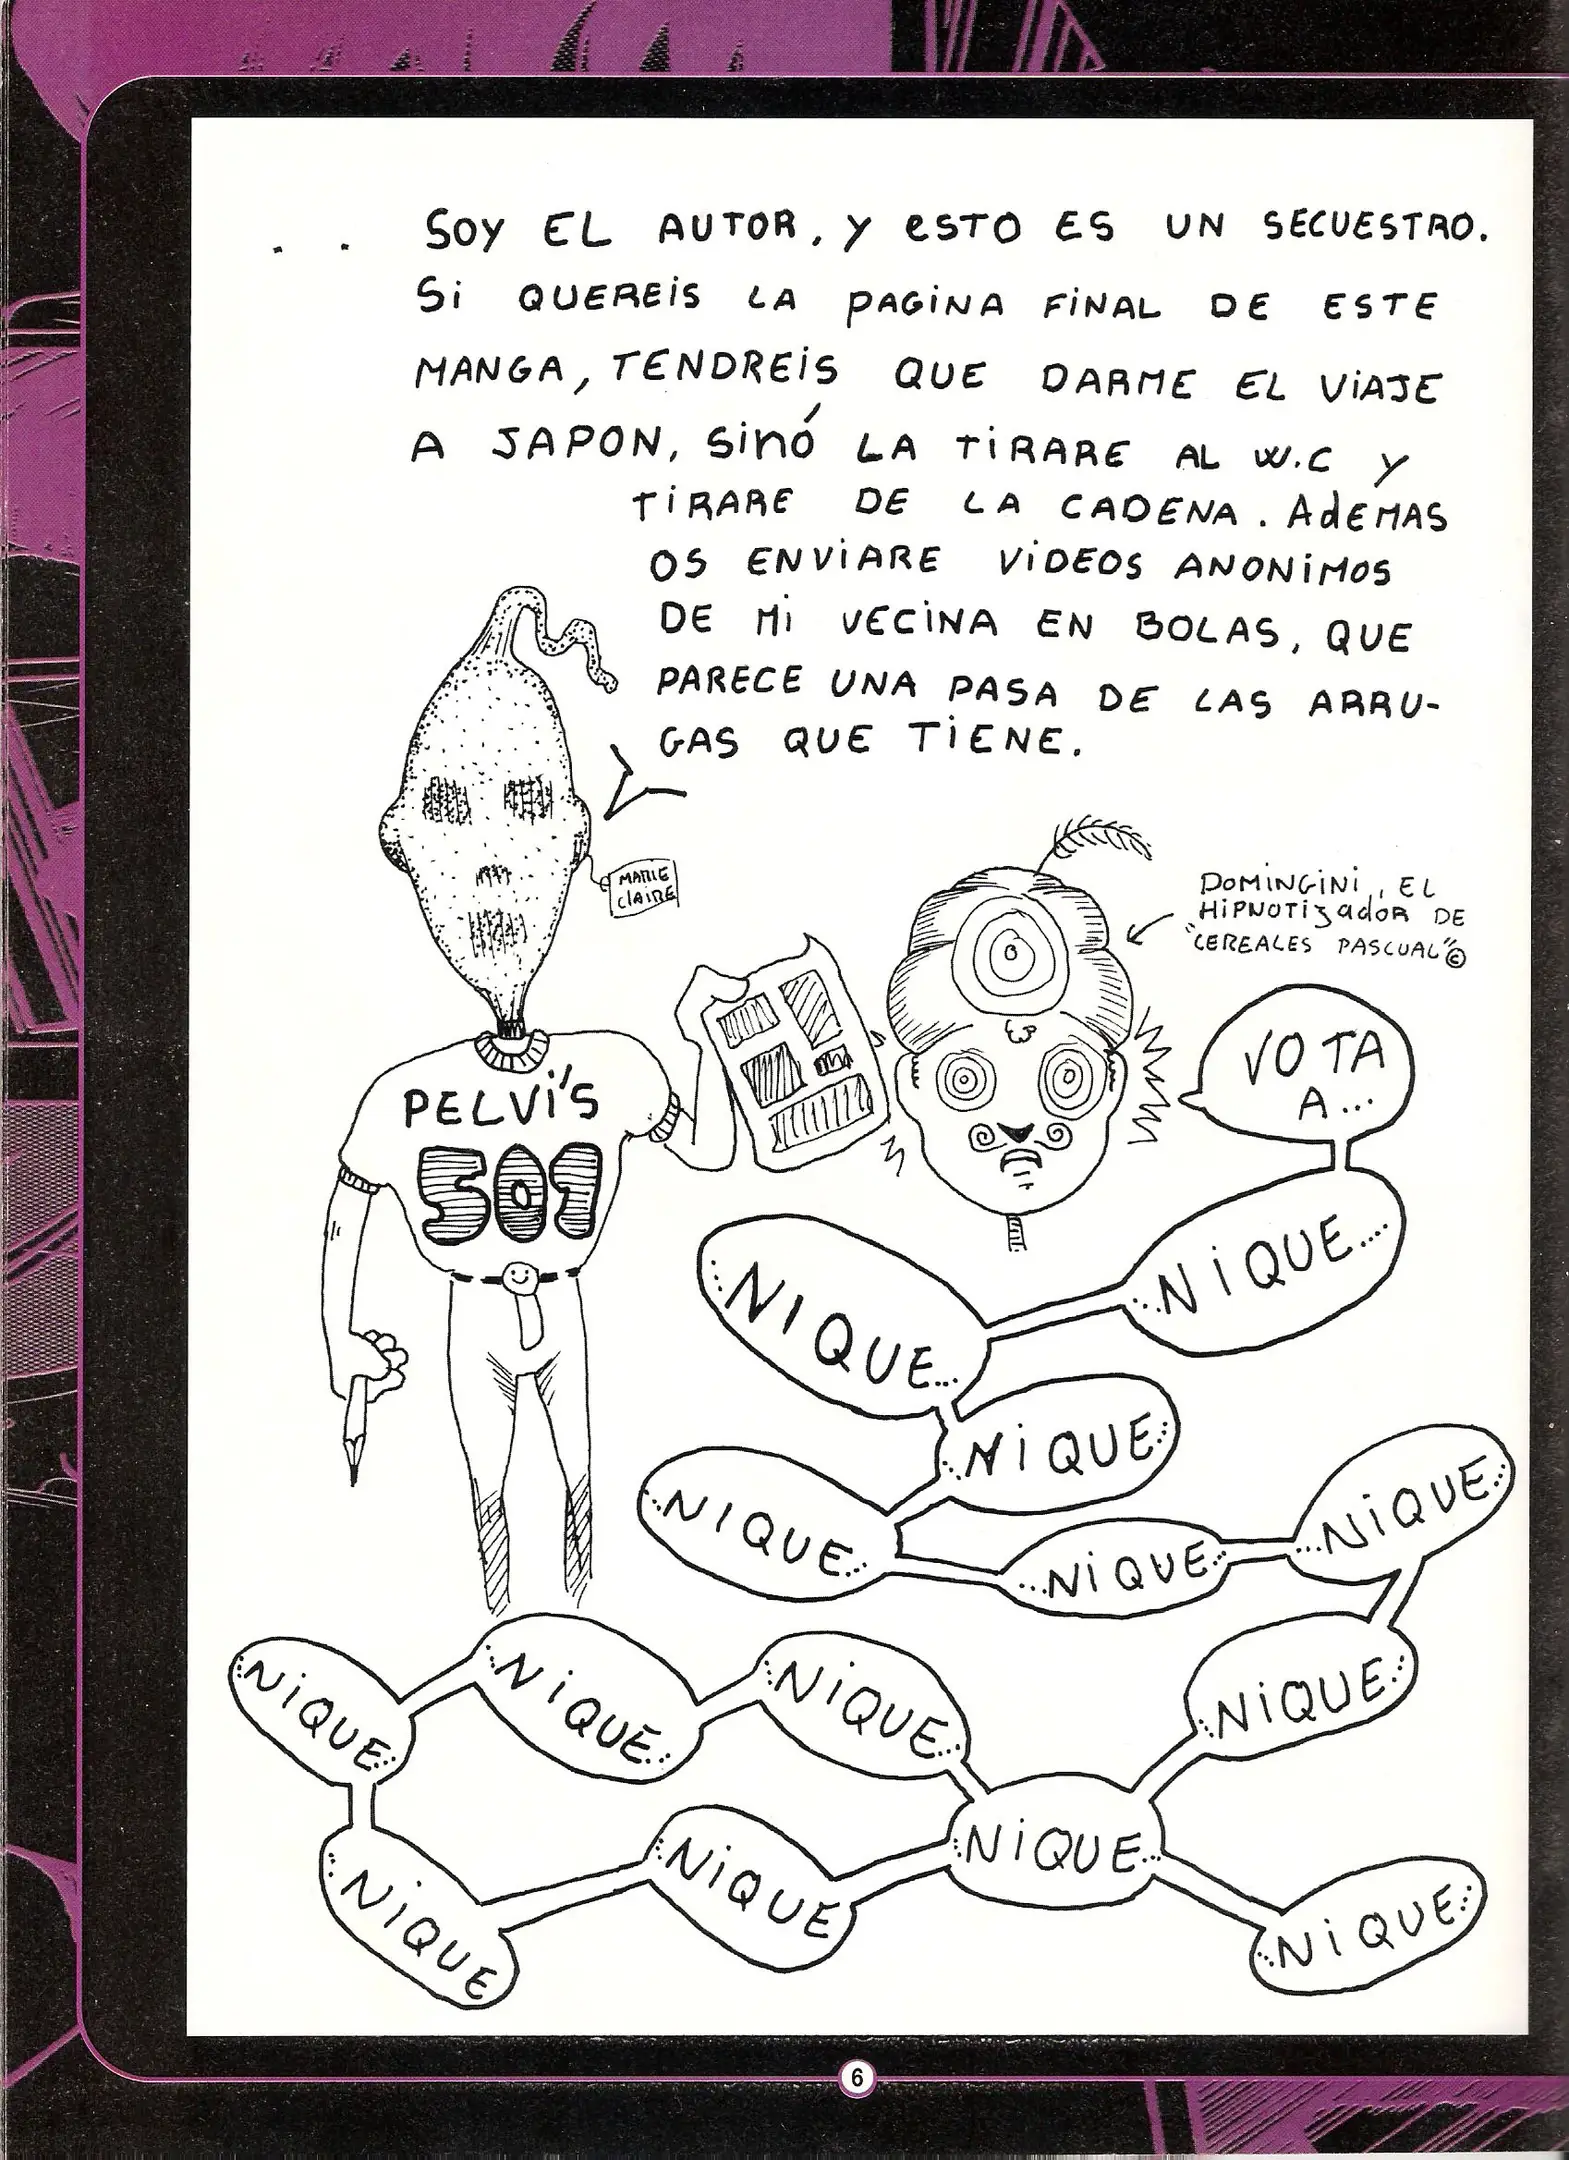 SOY EL AUTOR, Y ESTO ES UN SECUESTRO.
Si QUEREiS LA PAGiNA FiNAL DE ESTE
MANGA, TENDREiS QUE DARME EL ViAJE
A JAPON, SinÓ LA TiRARE AL W.C Y
TiRARE DE LA CADENA. AdEMAS
OS ENViARE ViDEOS ANONiMOS
DE Mi VECiNA EN BOLAS, QUE
PARECE UNA PASA DE LAS ARRU-
GAS QUE TiENE.
MARIE
ClAiRE
DOMiNGiNi, EL
HiPNOTizadoR DE
"CEREALES PASCUAL"©
PELVi'S
501
VOTA
A...
NiQUE....
NIQUE...
NiQUE
NIQUE
...NiQUE
...NiQUE
NiQUE
NiQUE
NiQUE
NiQUE
NiQUE
NiQUE
NiQUE
NiQUE
6